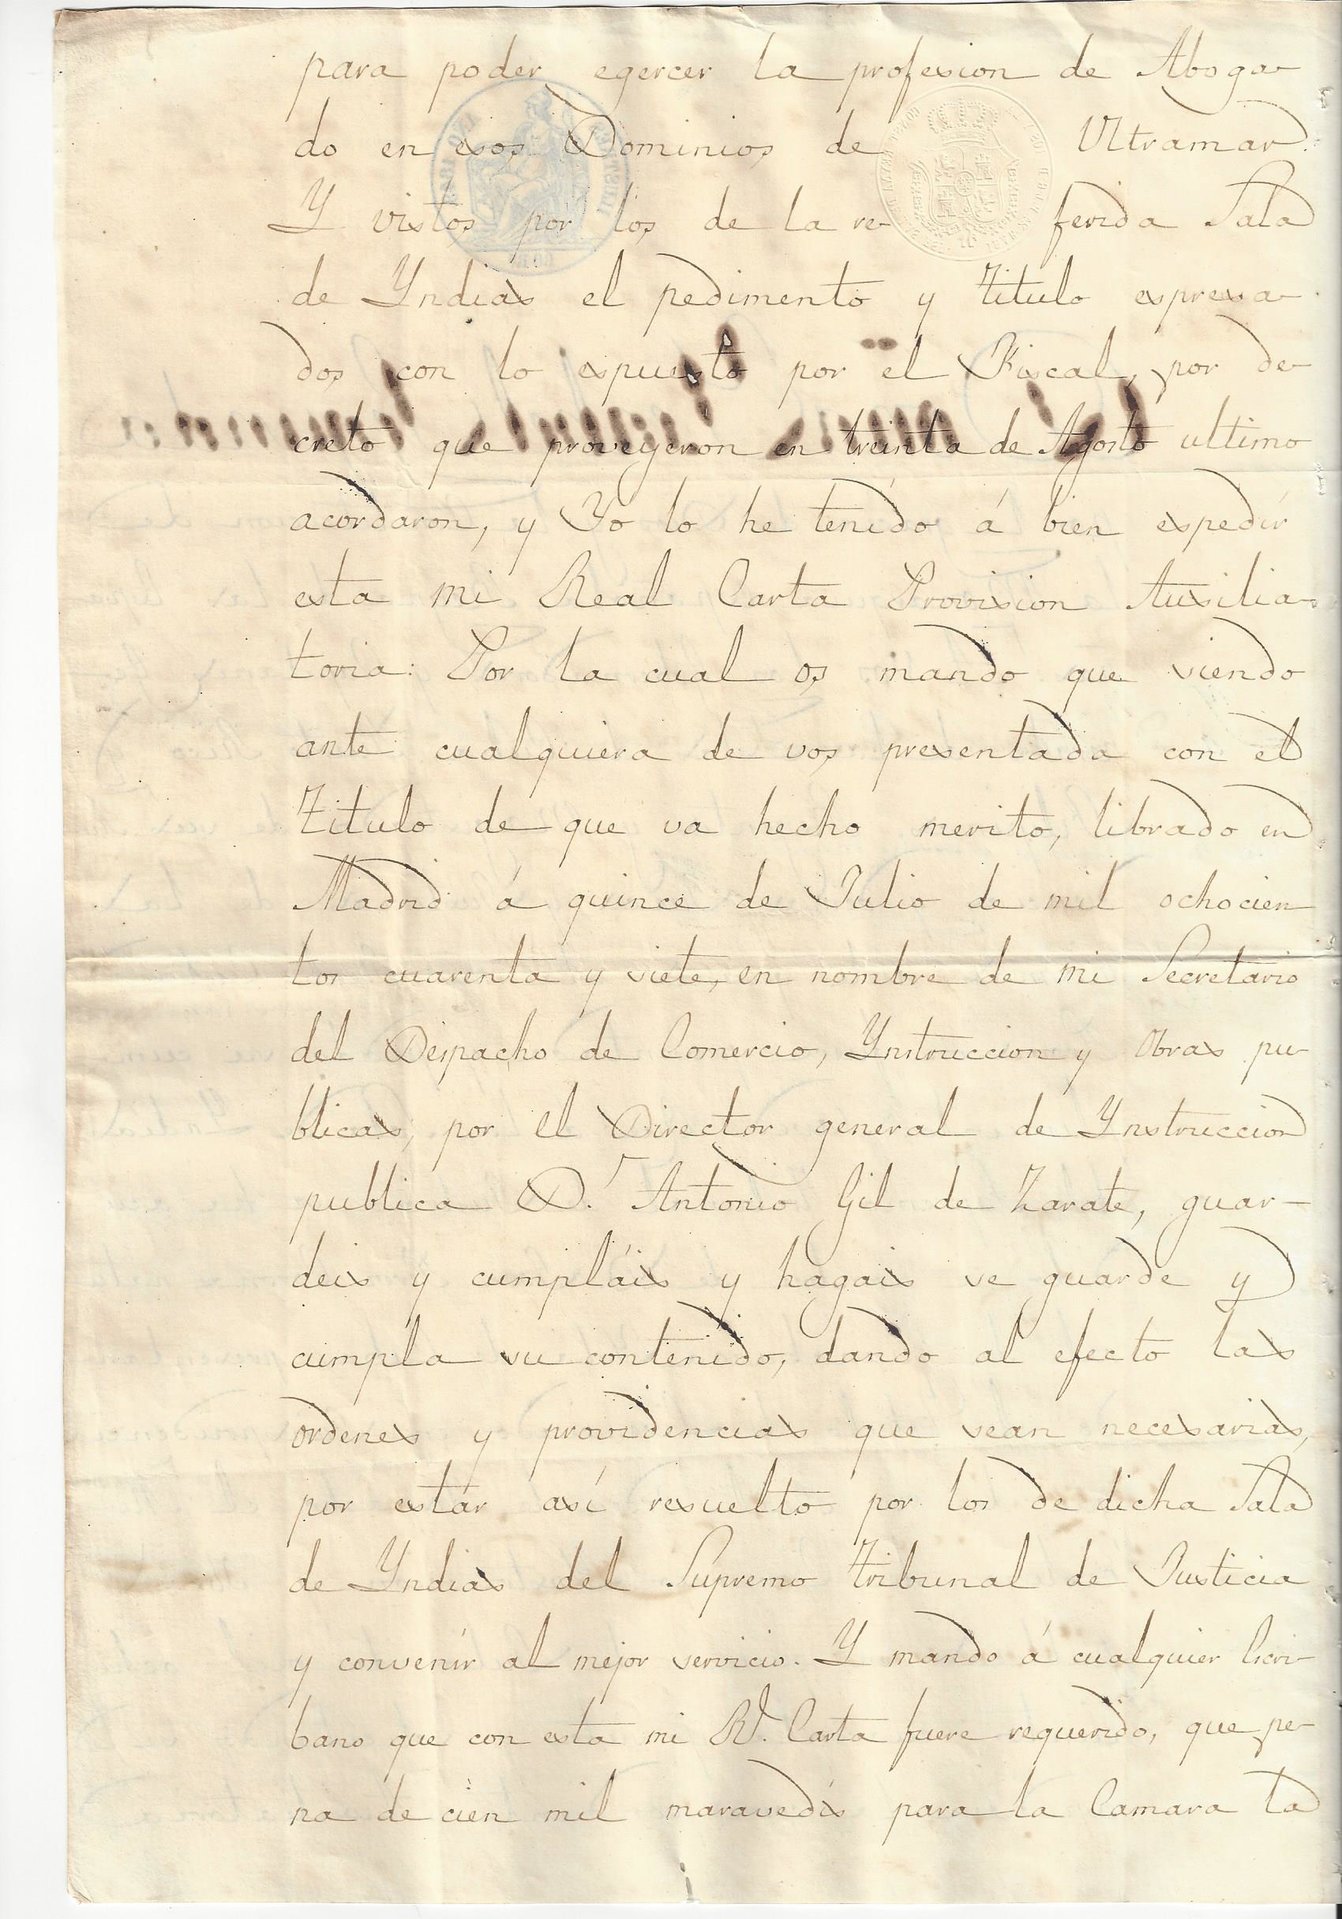 para poder egercer la profesion de Aboga-
do en esos Dominios de Ultramar.
Y vistos por los de la re- ferida Sala
de Yndias el pedimento y titulo espresa-
dos con lo espuesto por el Fiscal, por de-
creto que proveyeron en treinta de Agosto ultimo
acordaron, y Yo lo he tenido á bien espedir
esta mi Real Carta Provision Auxilia-
toria: Por la cual os mando que siendo
ante cualquiera de vos presentada con el
titulo de que va hecho merito, librado en
Madrid á quince de Julio de mil ochocien
tos cuarenta y siete, en nombre de mi Secretario
del Despacho de Comercio, Ynstruccion y Obras pu-
blicas, por el Director general de Ynstruccion
publica D.ⁿ Antonio Gil de Zarate, guar-
deis y cumpláis y hagais se guarde y
cumpla su contenido, dando al efecto las
ordenes y providencias que sean necesarias,
por estár así resuelto por los de dicha Sala
de Yndias del Supremo tribunal de Justicia
y convenir al mejor servicio. Y mando á cualquier Escri-
bano que con esta mi R.ˡ Carta fuere requerido, que pe-
na de cien mil maravedís para la Camara la